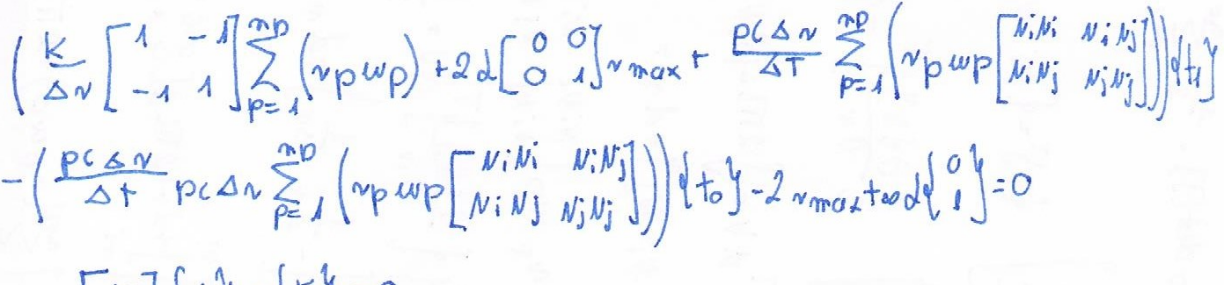 ( K/Δr [1 -1; -1 1] ∑_{p=1}^{np} (r_p w_p) + 2α [0 0; 0 1] r_max + ρcΔr/ΔT ∑_{p=1}^{np} ( r_p w_p [NiNi NiNj; NiNj NjNj] ) ) {t_1}
- ( ρcΔr/Δt ρcΔr ∑_{p=1}^{np} ( r_p w_p [NiNi NiNj; NiNj NjNj] ) ) {t_0} - 2 r_max t_∞ α {0; 1} = 0